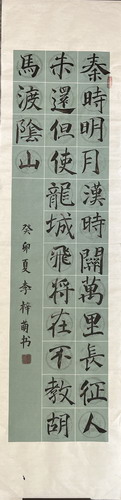 秦時明月漢時關萬里長征人
未還但使龍城飛将在不教胡
馬渡陰山
癸卯夏李梓萌书